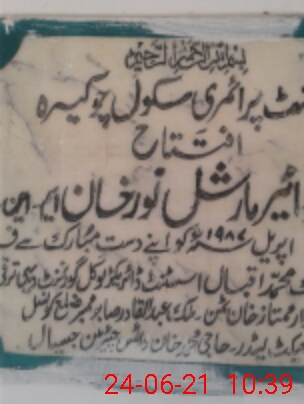 بسم اللہ الرحمٰن الرحیم
پرائمری سکول چوکیرہ
افتتاح
ائیر مارشل نور خان ایم۔این
اپریل ۱۹۸۷ کو اپنے دست مبارک سے
محمد اقبال اسسٹنٹ ڈائریکٹر لوکل گورنمنٹ دیہی ترقی
ممتاز خان ٹمن۔ ملک عبدالقادر صابر ممبر ضلع کونسل
لیڈر۔ حاجی خان وائس چیئرمین جسیال
24-06-21 10:39